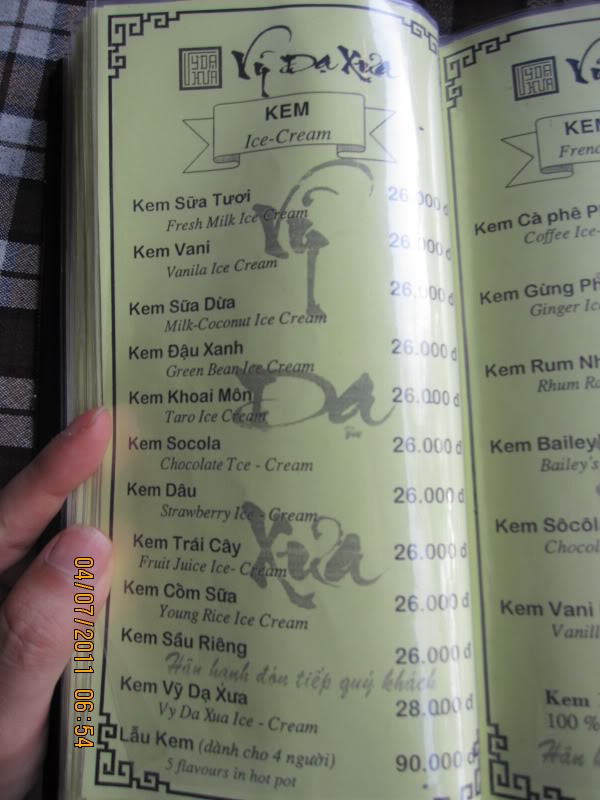 VỸ DẠ XƯA
Vỹ Dạ Xưa
KEM
Ice-Cream
Kem Sữa Tươi 26.000 đ
Fresh Milk Ice Cream
Kem Vani 26.000 đ
Vanila Ice Cream
Kem Sữa Dừa 26.000 đ
Milk-Coconut Ice Cream
Kem Đậu Xanh 26.000 đ
Green Bean Ice Cream
Kem Khoai Môn 26.000 đ
Taro Ice Cream
Kem Socola 26.000 đ
Chocolate Tce - Cream
Kem Dâu 26.000 đ
Strawberry Ice - Cream
Kem Trái Cây 26.000 đ
Fruit Juice Ice- Cream
Kem Cồm Sữa 26.000 đ
Young Rice Ice Cream
Kem Sầu Riêng 26.000 đ
Hân hạnh đón tiếp quý khách
Kem Vỹ Dạ Xưa 28.000 đ
Vy Da Xua Ice - Cream
Lẩu Kem (dành cho 4 người) 90.000 đ
5 flavours in hot pot
Vỹ Dạ Xưa
VỸ DẠ XƯA
Vỹ
KEM
Kem Cà phê
Coffee Ice-
Kem Gừng
Ginger
Kem Rum
Rhum
Kem Bailey
Bailey's
Kem Sôcôl
Chocol
Kem Vani
Vanill
Kem
100 %
Hân
04/07/2011 06:54